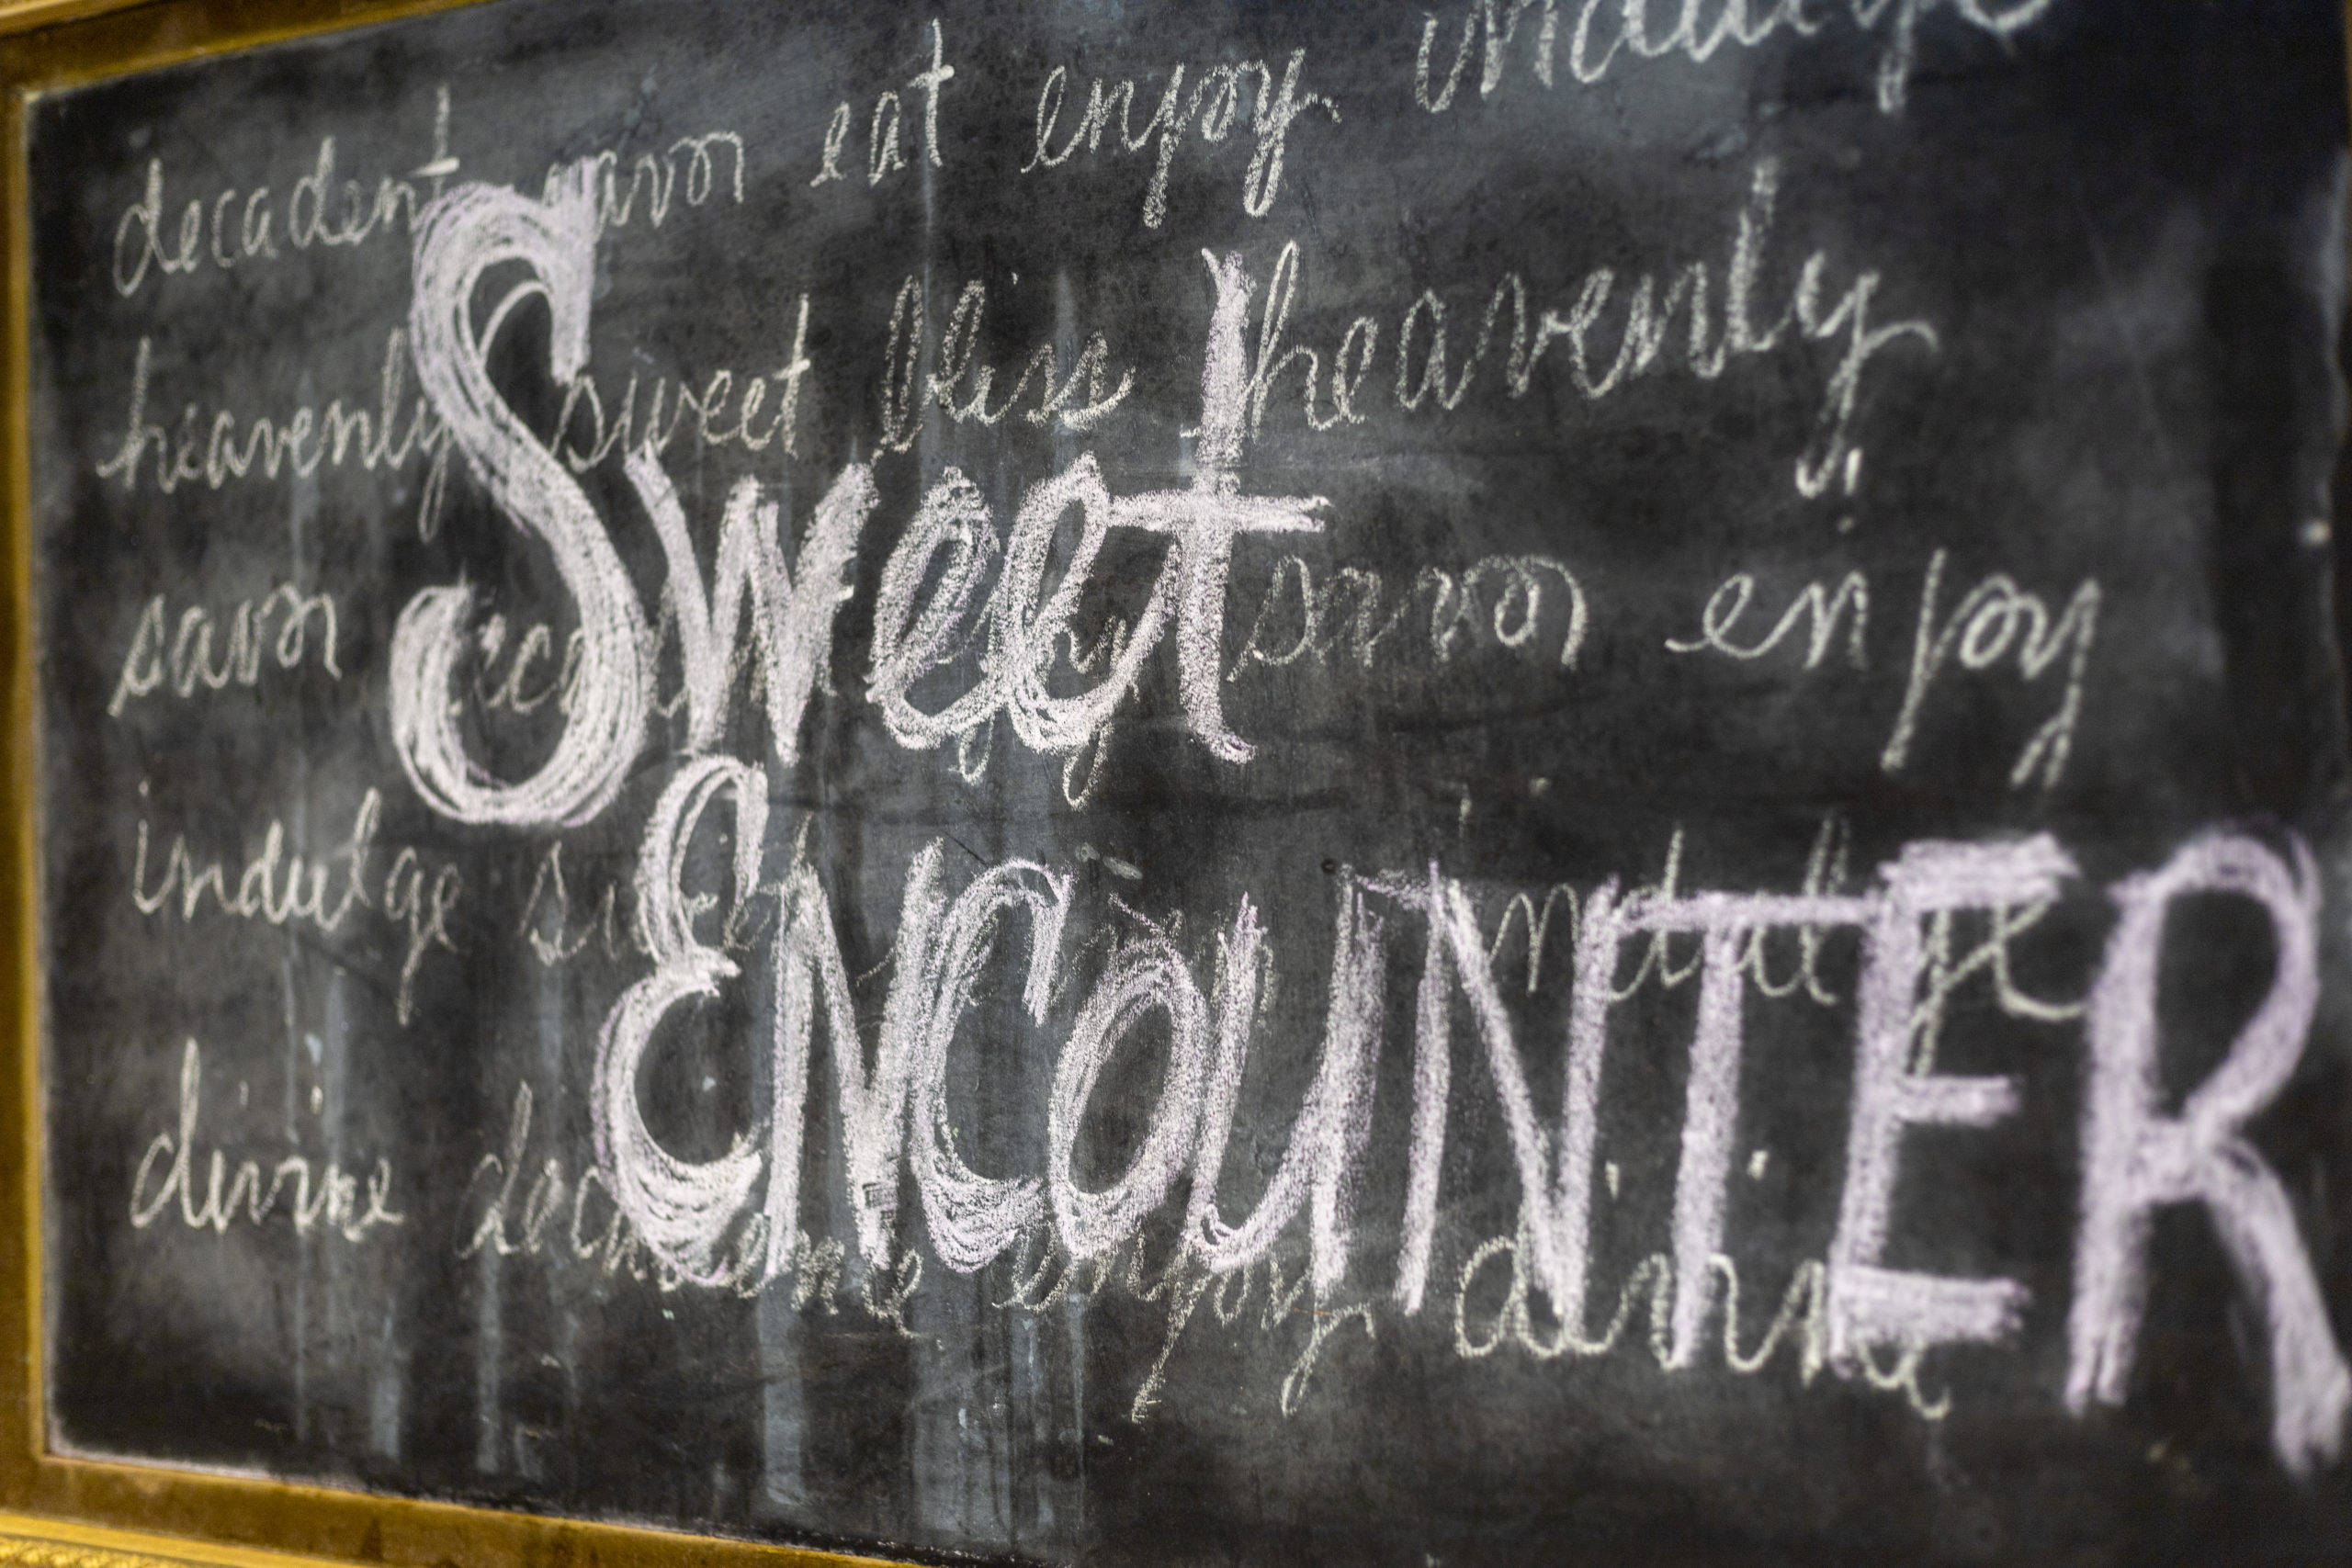 decadent savor eat enjoy indulge
heavenly sweet bliss heavenly
Sweet
savor savor enjoy
indulge indulge
ENCOUNTER
divine enjoy divine